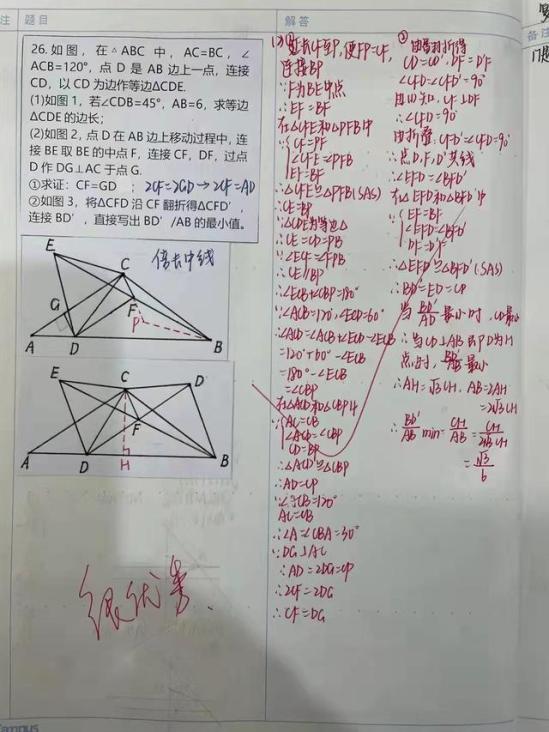 注
题目
解答
备注
26.如图，在△ABC 中，AC=BC，∠
ACB=120°，点 D 是 AB 边上一点，连接
CD，以 CD 为边作等边△CDE.
(1)如图1，若∠CDB=45°，AB=6，求等边
△CDE 的边长；
(2)如图2，点 D 在 AB 边上移动过程中，连
接 BE 取 BE 的中点 F，连接 CF，DF，过点
D 作 DG⊥AC 于点 G.
①求证：CF=GD ； 2CF=2GD→2CF=AD
②如图 3，将△CFD 沿 CF 翻折得△CFD′，
连接 BD′，直接写出 BD′/AB 的最小值。
倍长中线
E
C
G
F
P
A
D
B
E
C
D′
F
A
D
H
B
很优秀.
(2)①延长CF至P，使FP=CF，
连接BP
∵F为BE中点
∴EF=BF
在△CFE和△PFB中
CF=PF
∠CFE=∠PFB
EF=BF
∴△CFE≌△PFB(SAS)
∴CE=BP
∵△CDE为等边△
∴CE=CD=PB
∴∠ECF=∠FPB
∴CE∥BP
∴∠ECB+∠CBP=180°
∵∠ACB=120°，∠ECD=60°
∴∠ACD=∠ACB+∠ECD-∠ECB
=120°+60°-∠ECB
=180°-∠ECB
=∠CBP
在△ACD和△CBP中
AC=CB
∠ACD=∠CBP
CD=BP
∴△ACD≌△CBP
∴AD=CP
∵∠ACB=120°
AC=CB
∴∠A=∠CBA=30°
∵DG⊥AC
∴AD=2DG=CP
∴2CF=2DG
∴CF=DG
②
由翻折得
CD=CD′，DF=D′F
∠CFD=∠CFD′=90°
由①知，CF⊥DF
∴∠CFD=90°
由折叠，∠CFD′=∠CFD=90°
∴点D，F，D′共线
∴∠EFD=∠BFD′
在△EFD和△BFD′中
EF=BF
∠EFD=∠BFD′
DF=D′F
∴△EFD≌△BFD′(SAS)
∴BD′=ED=CD
当BD′/AB最小时，CD最小
∴当CD⊥AB即D为H
点时，BD′/AB最小
∴AH=√3CH，AB=2AH
=2√3CH
∴BD′/AB min=CH/AB=CH/2√3CH
=√3/6
Campus